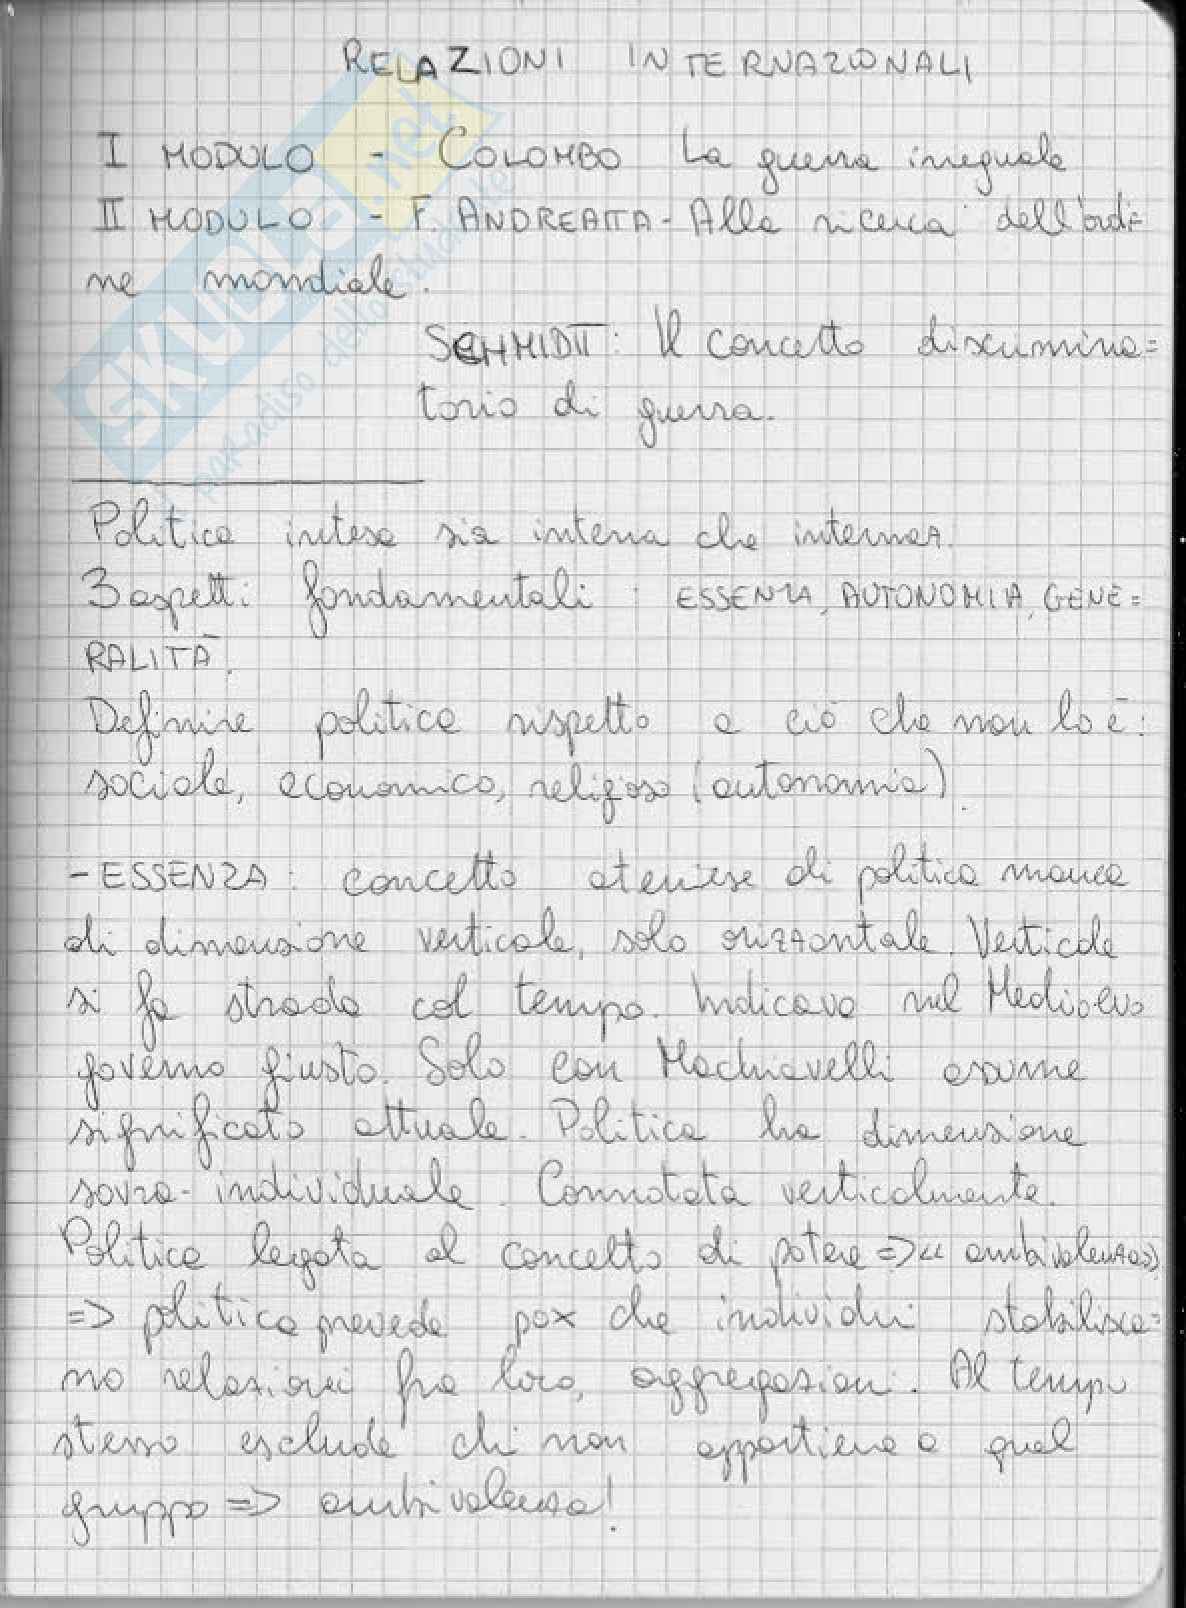 RELAZIONI INTERNAZIONALI
I MODULO - COLOMBO La guerra ineguale
II MODULO - F. ANDREATTA - Alla ricerca dell'ordi=
ne mondiale.
SCHMIDTT: Il concetto discrimina=
torio di guerra.
Politica intesa sia interna che internaz.
3 aspetti fondamentali: ESSENZA, AUTONOMIA, GENE=
RALITÀ.
Definire politica rispetto a ciò che non lo è:
sociale, economico, religioso (autonomia).
- ESSENZA: concetto ateniese di politica manca
di dimensione verticale, solo orizzontale. Verticale
si fa strada col tempo. Indicava nel Medioevo
governo giusto. Solo con Machiavelli assume
significato attuale. Politica ha dimensione
sovra-individuale. Connotata verticalmente.
Politica legata al concetto di potere => «ambivalenza»
=> politica prevede pox che individui stabilisca=
no relazioni fra loro, aggregazioni. Al tempo
stesso esclude chi non appartiene a quel
gruppo => ambivalenza!
SKUOLA.net
il paradiso dello studente